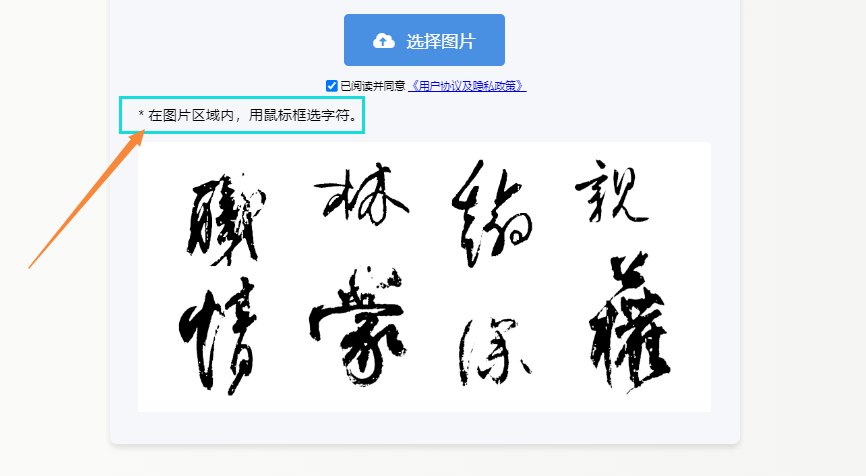 选择图片
已阅读并同意 《用户协议及隐私政策》
* 在图片区域内，用鼠标框选字符。
職 林 翰 親
情 蒙 深 權